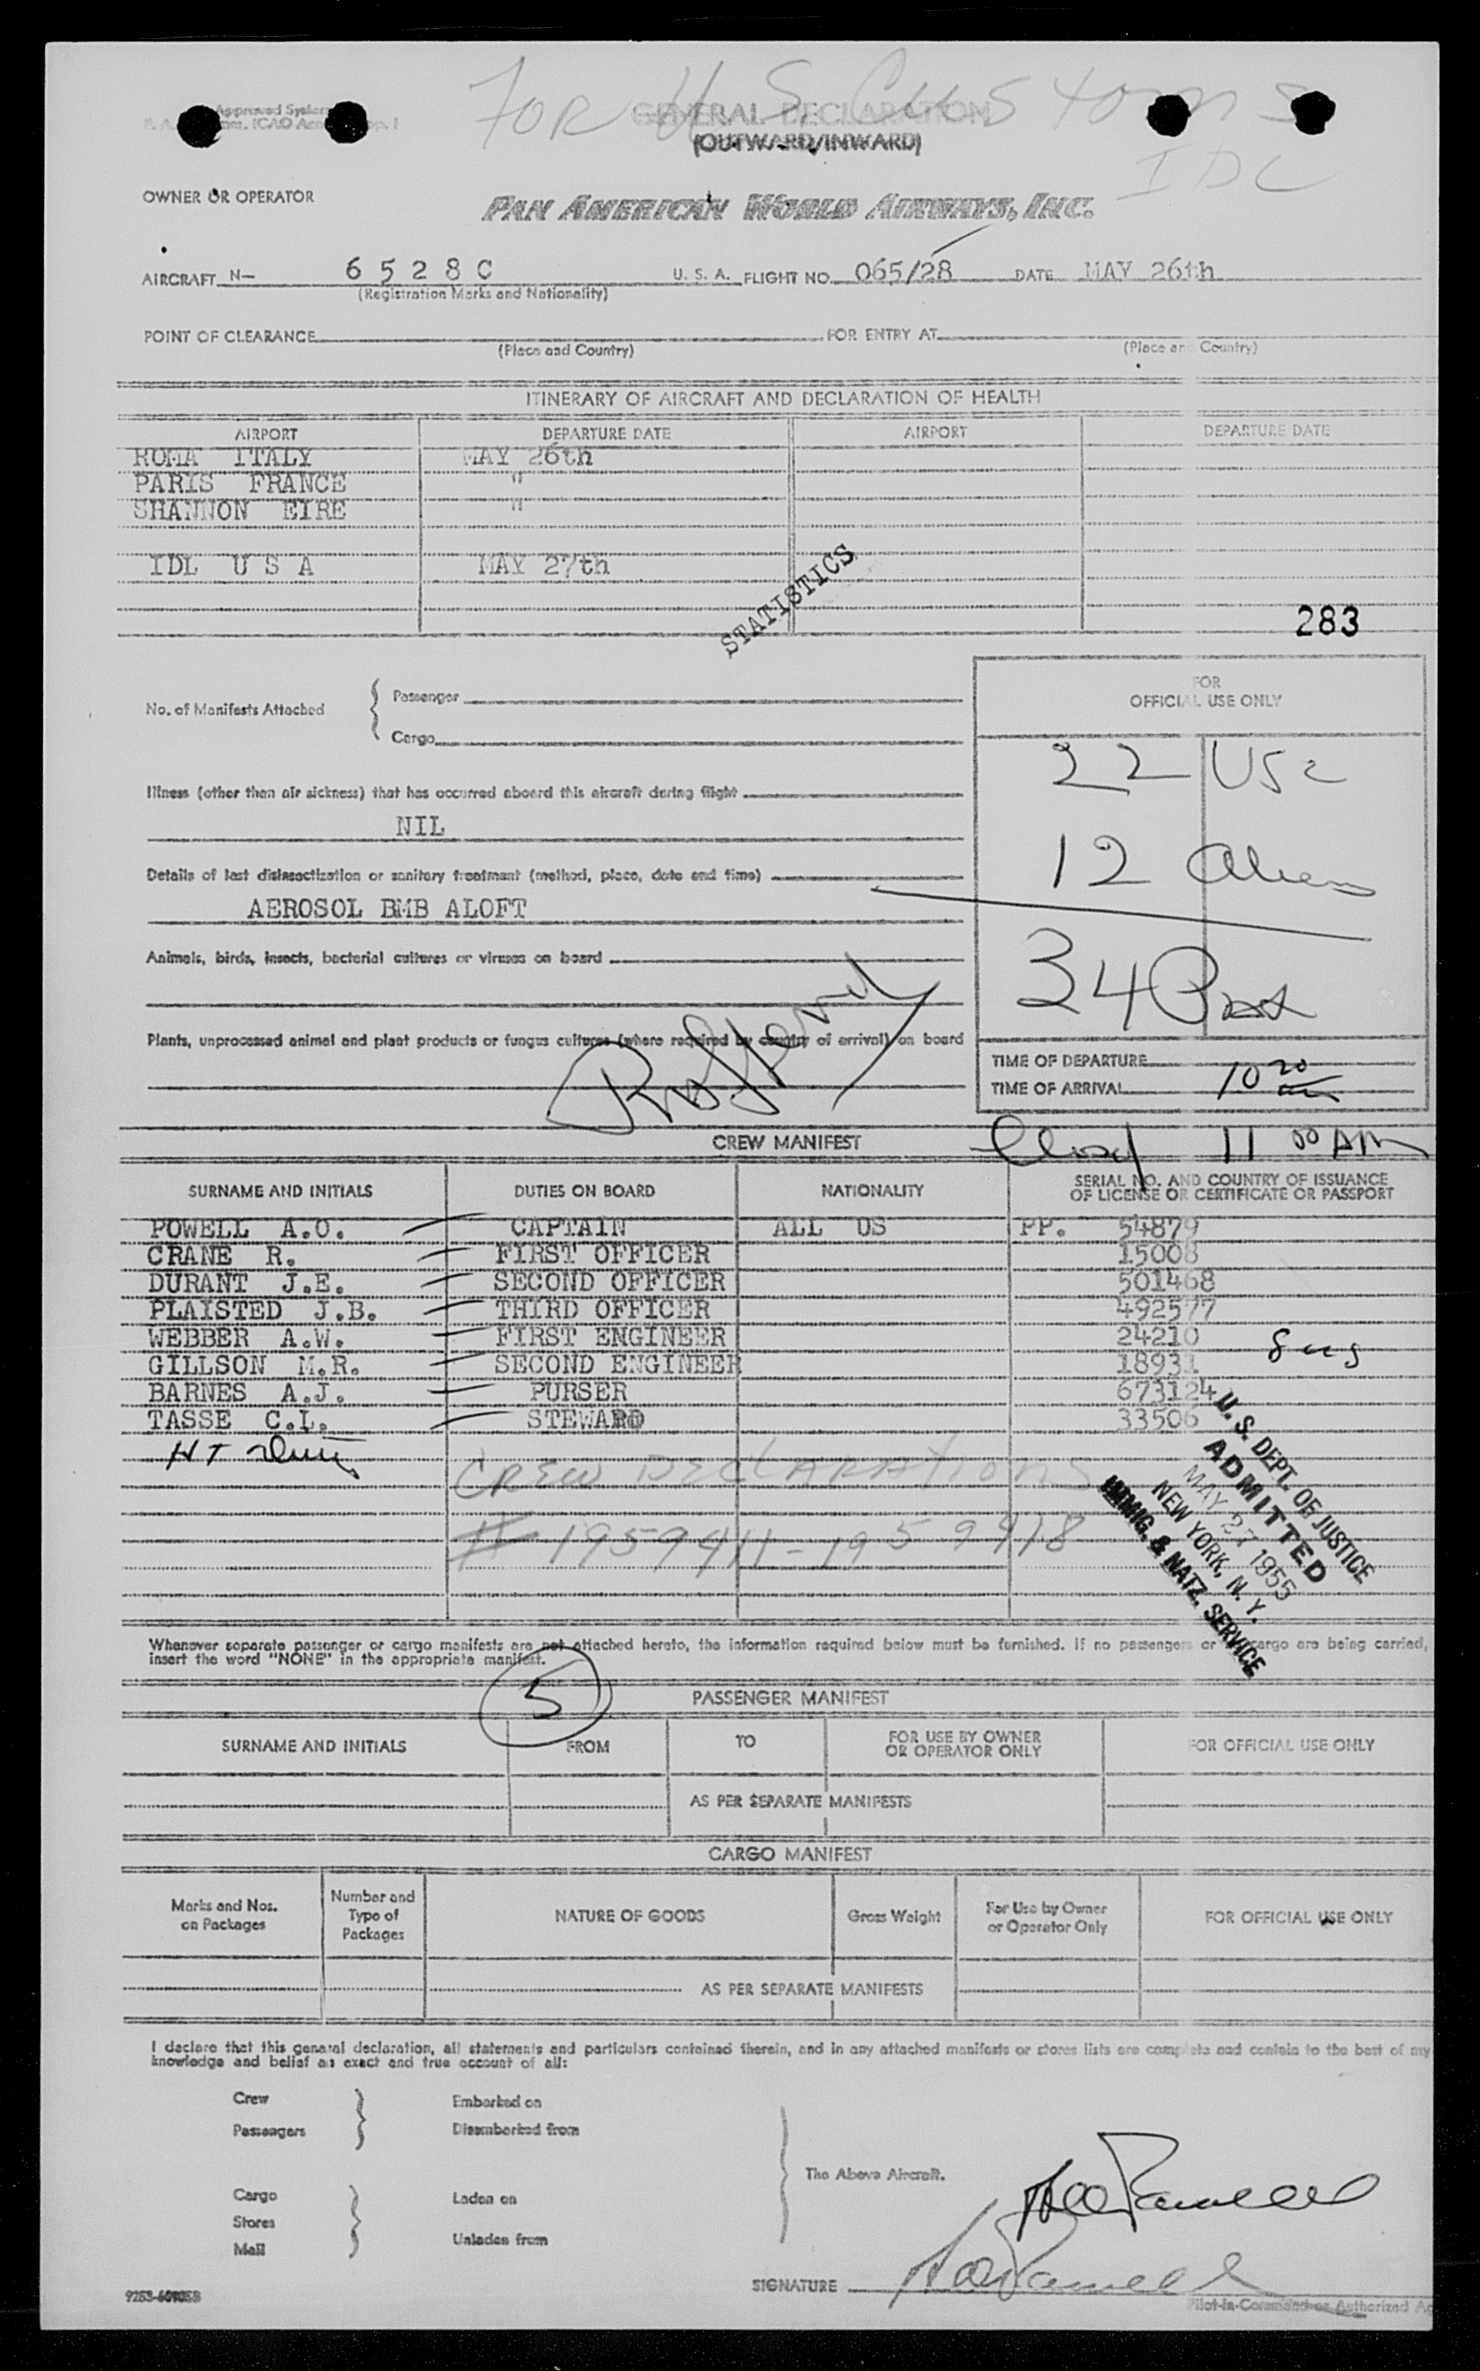 FOR U.S. CUSTOMS
IDL
Approved System
GENERAL DECLARATION
(OUTWARD/INWARD)
OWNER OR OPERATOR PAN AMERICAN WORLD AIRWAYS, INC.
AIRCRAFT N- 6528C U. S. A. FLIGHT NO. 065/28 DATE MAY 26th
(Registration Marks and Nationality)
POINT OF CLEARANCE FOR ENTRY AT
(Place and Country) (Place and Country)
ITINERARY OF AIRCRAFT AND DECLARATION OF HEALTH
AIRPORT DEPARTURE DATE AIRPORT DEPARTURE DATE
ROMA ITALY MAY 26th
PARIS FRANCE "
SHANNON EIRE "
IDL U S A MAY 27th
STATISTICS
283
No. of Manifests Attached { Passenger
Cargo
FOR
OFFICIAL USE ONLY
22 USC
12 Aliens
34 Pax
Illness (other than air sickness) that has occurred aboard this aircraft during flight
NIL
Details of last disinsectization or sanitary treatment (method, place, date and time)
AEROSOL BMB ALOFT
Animals, birds, insects, bacterial cultures or viruses on board
Plants, unprocessed animal and plant products or fungus cultures (where required by country of arrival) on board
TIME OF DEPARTURE
TIME OF ARRIVAL 10 20 am
CREW MANIFEST
Closed 11 00 AM
SURNAME AND INITIALS DUTIES ON BOARD NATIONALITY SERIAL NO. AND COUNTRY OF ISSUANCE
OF LICENSE OR CERTIFICATE OR PASSPORT
POWELL A.O. CAPTAIN ALL US PP. 54879
CRANE R. FIRST OFFICER 15008
DURANT J.E. SECOND OFFICER 501468
PLAISTED J.B. THIRD OFFICER 492577
WEBBER A.W. FIRST ENGINEER 24210
GILLSON M.R. SECOND ENGINEER 18931
8 US
BARNES A.J. PURSER 673124
TASSE C.L. STEWARD 33506
CREW DECLARATIONS
# 1959411-1959418
U. S. DEPT. OF JUSTICE
ADMITTED
MAY 27 1955
NEW YORK, N. Y.
IMMIG. & NATZ. SERVICE
Whenever separate passenger or cargo manifests are not attached hereto, the information required below must be furnished. If no passengers or no cargo are being carried,
insert the word "NONE" in the appropriate manifest.
5
PASSENGER MANIFEST
SURNAME AND INITIALS FROM TO FOR USE BY OWNER
OR OPERATOR ONLY FOR OFFICIAL USE ONLY
AS PER SEPARATE MANIFESTS
CARGO MANIFEST
Marks and Nos.
on Packages Number and
Type of
Packages NATURE OF GOODS Gross Weight For Use by Owner
or Operator Only FOR OFFICIAL USE ONLY
AS PER SEPARATE MANIFESTS
I declare that this general declaration, all statements and particulars contained therein, and in any attached manifests or stores lists are complete and contain to the best of my
knowledge and belief an exact and true account of all:
Crew Embarked on
Passengers Disembarked from
The Above Aircraft.
Cargo Laden on
Stores
Mail Unladen from
AO Powell
SIGNATURE AO Powell
Pilot-in-Command or Authorized Ag